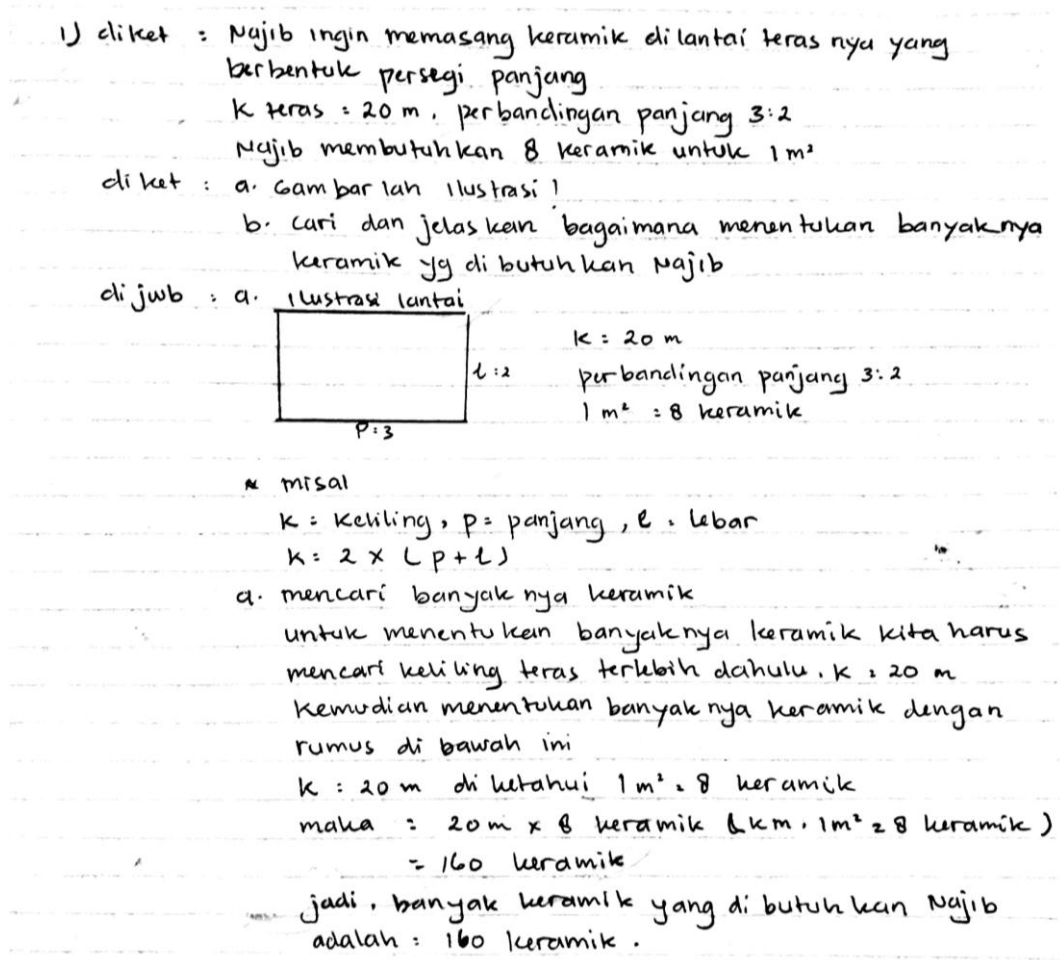 1) diket : Najib ingin memasang keramik di lantai teras nya yang
berbentuk persegi panjang
K teras = 20 m, perbandingan panjang 3:2
Najib membutuhkan 8 keramik untuk 1 m²
diket : a. Gambar lah Ilustrasi !
b. cari dan jelaskan bagaimana menentukan banyaknya
keramik yg di butuhkan Najib
di jwb : a. Ilustrasi lantai
l : 2
P : 3
K : 20 m
perbandingan panjang 3:2
1 m² = 8 keramik
misal
K = Keliling, P = panjang, l = lebar
K = 2 x (p + l)
a. mencari banyak nya keramik
untuk menentukan banyaknya keramik kita harus
mencari keliling teras terlebih dahulu. K = 20 m
Kemudian menentukan banyak nya keramik dengan
rumus di bawah ini
K : 20 m di ketahui 1 m² = 8 keramik
maka : 20 m x 8 keramik (km. 1m² = 8 keramik)
= 160 keramik
jadi, banyak keramik yang di butuhkan Najib
adalah : 160 keramik.